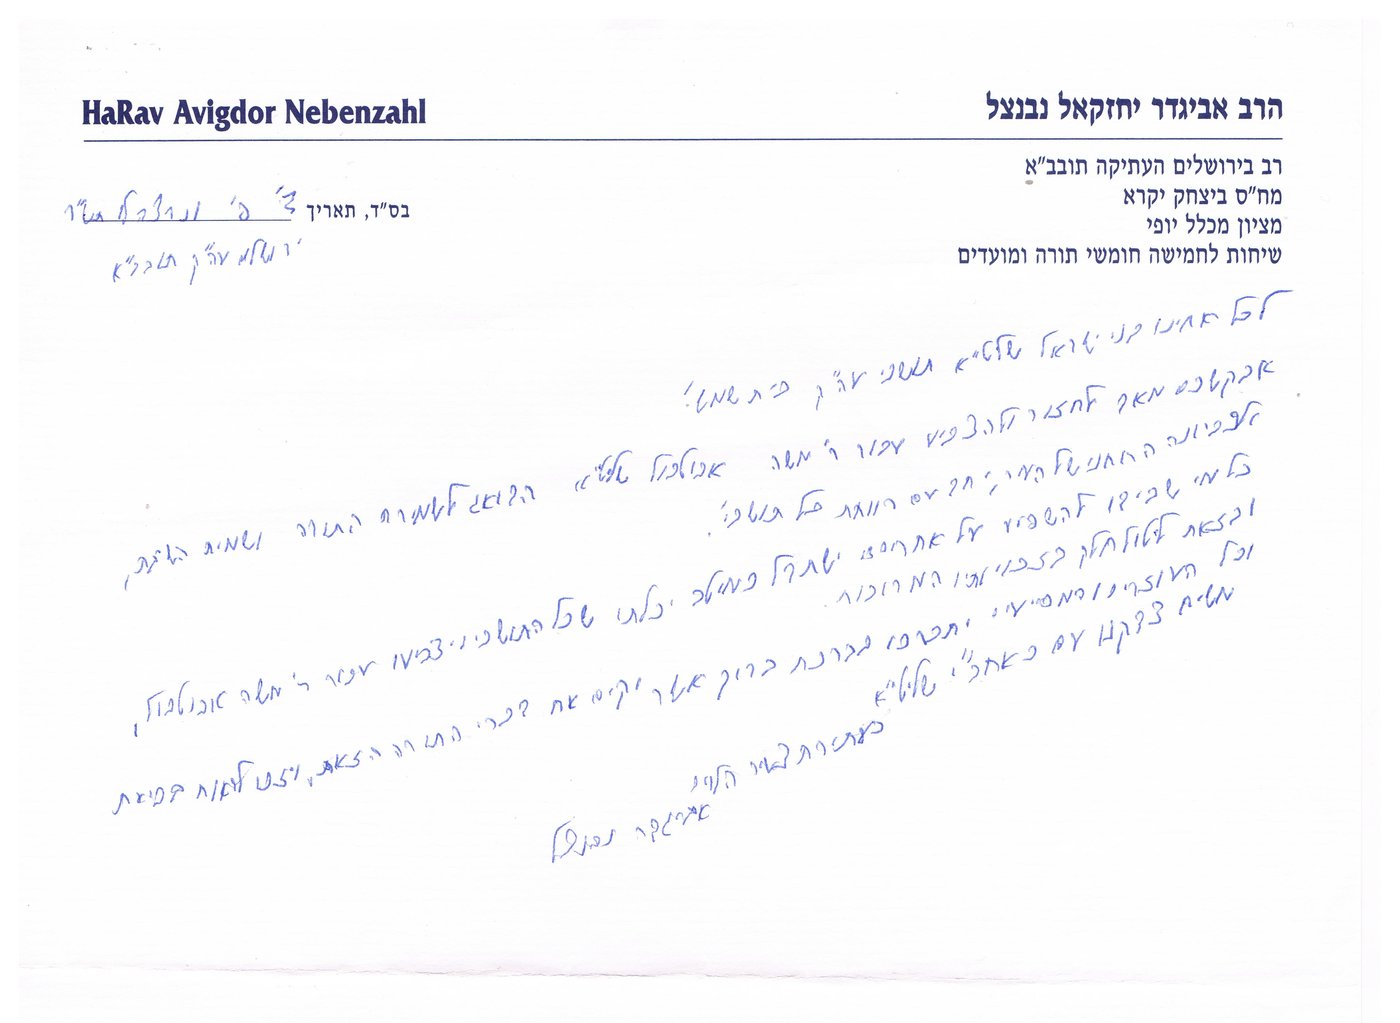 HaRav Avigdor Nebenzahl
הרב אביגדר יחזקאל נבנצל
רב בירושלים העתיקה תובב"א
מח"ס ביצחק יקרא
מציון מכלל יופי
שיחות לחמישה חומשי תורה ומועדים
בס"ד, תאריך
ירושלם עה"ק תובב"א
לכל אחינו בני ישראל שליט"א תושבי עה"ק בית שמש!
אבקשכם מאד לחזור ולהצביע עבור ר' משה אבוטבול שליט"א הדואג לשמירת התורה ושמירת השבת,
הרוחני של העיר, יחד עם רווחת כל תושבי'.
כל מי שבידו להשפיע על אחרים ישתדל כמיטב יכלתו שכל התושבים יצביעו עבור ר' משה אבוטבול,
ובזאת ליטול חלק בזכויותיו המרובות.
וכל העוזרים והמסייעים יתברכו בברכת ברוך אשר יקים את דברי התורה הזאת, ויזכו לראות בביאת
משיח צדקנו עם כ אחב"י שליט"א
בעתירת צעיר הלוים
אביגדר נבנצל